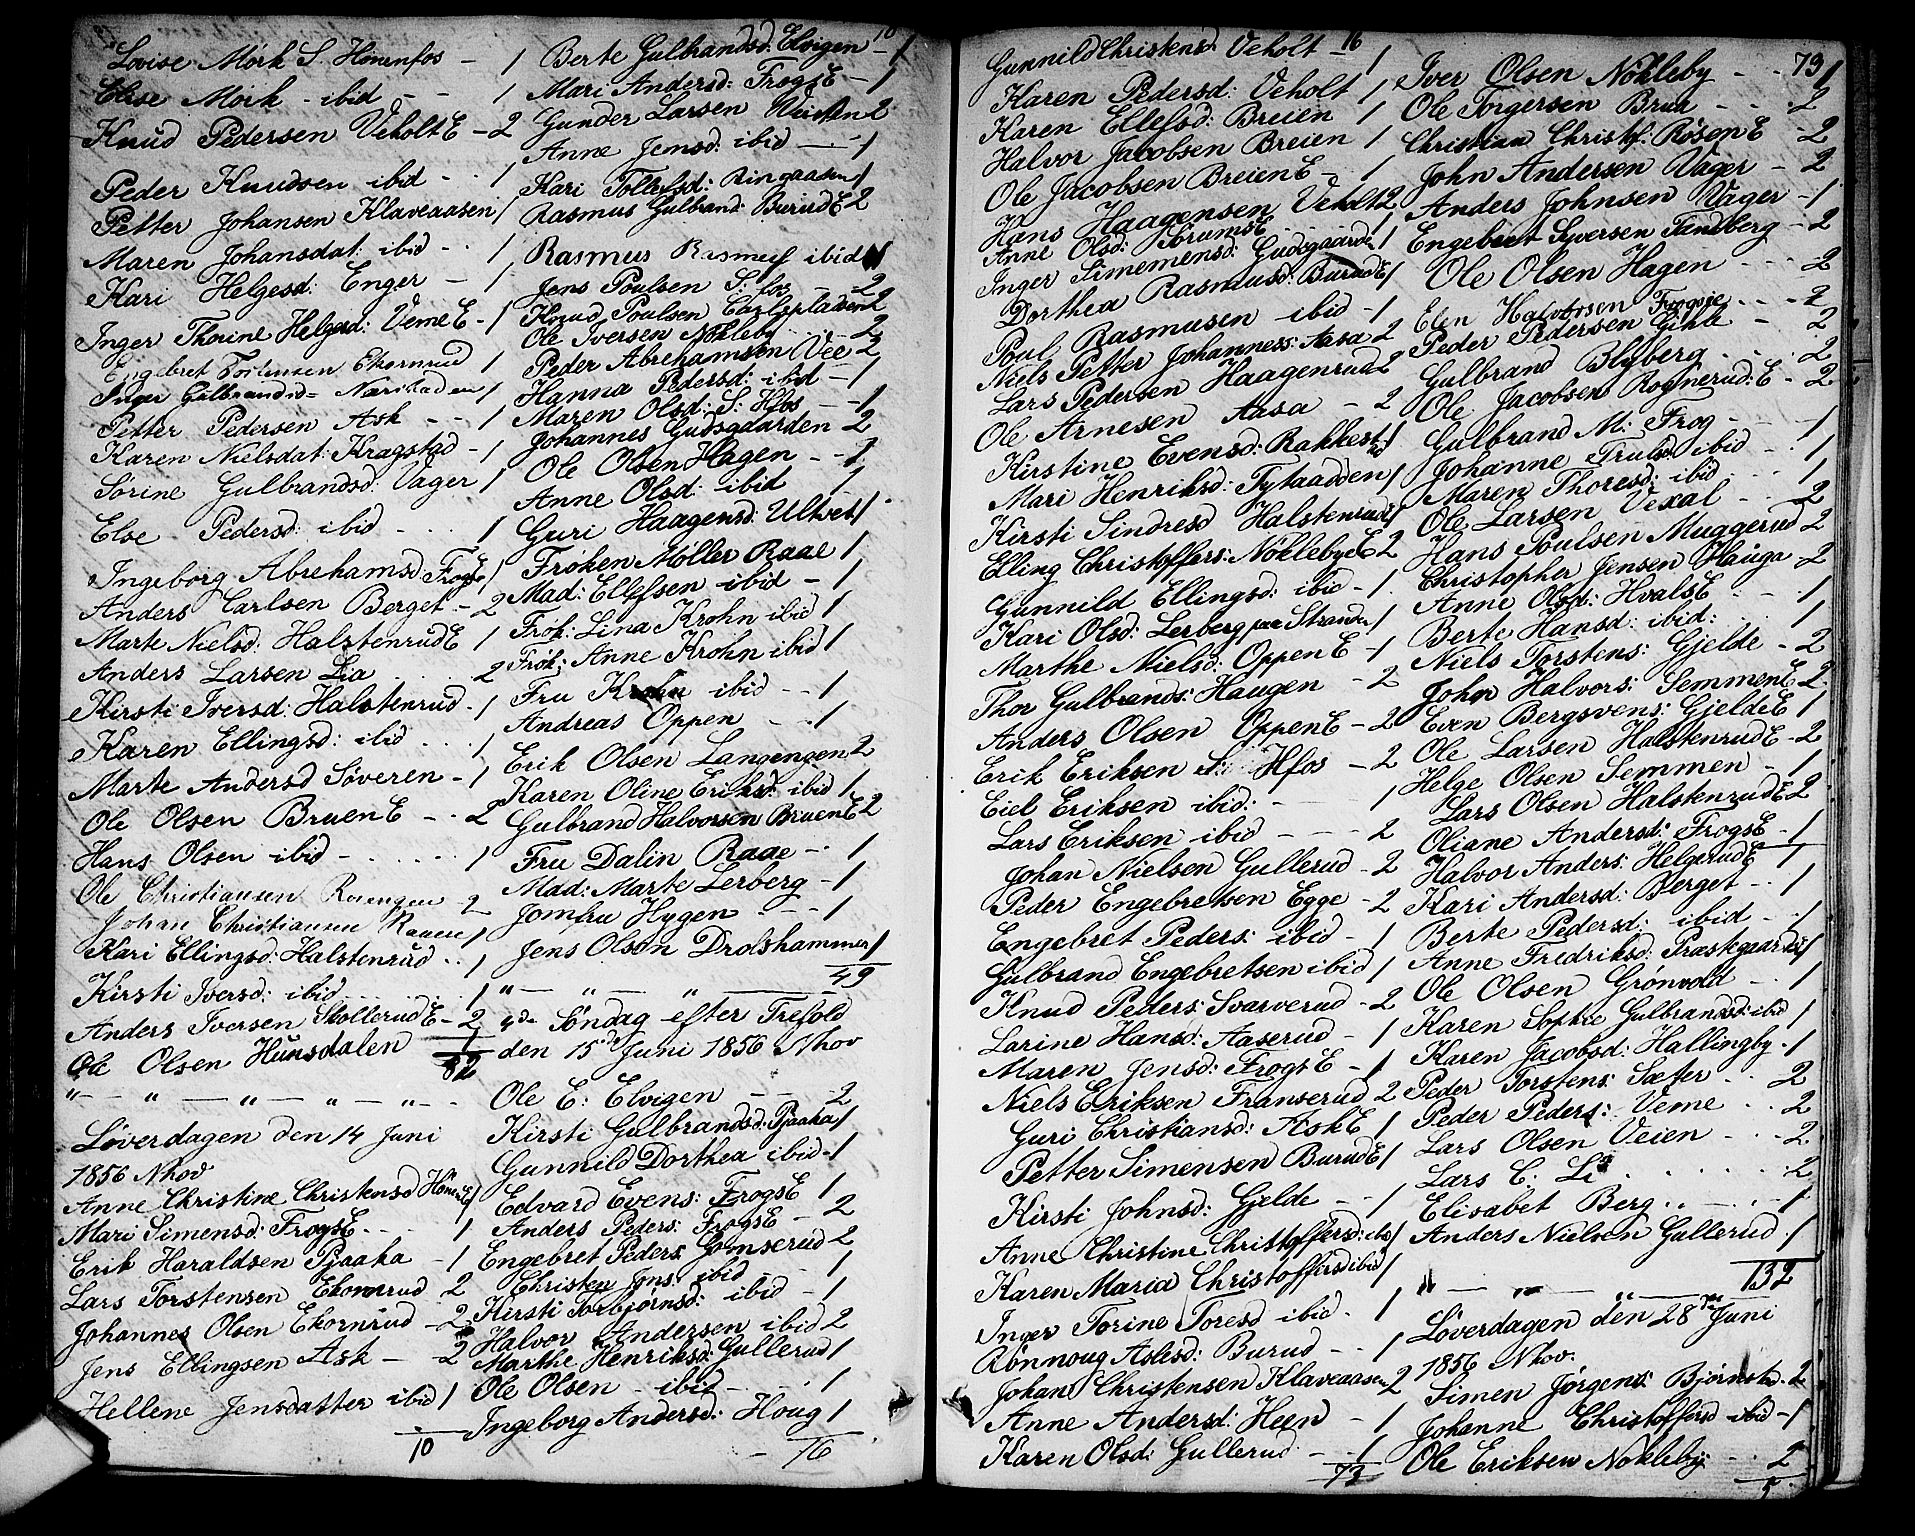 Lovise Mørk S. Hønenfos - 1
Elise Mørk - ibid - - 1
Knud Pedersen Veholt E - 2
Peder Knudsen ibid - - 1
Petter Johansen Klaveaasen 1
Maren Johansdat: ibid - - 1
Kari Helgesd: Enger - 1
Inger Thorine Helgesd: Veme E - 1
Engebret Ekornrud 1
Inger Gulbrandsd= 1
Petter Pedersen Ask - - 1
Karen Nielsdat: Kragstad - 1
Sørine Gulbrandsd: Vager 1
Else Pedersd: ibid - - - 1
Ingeborg Abrehamsd 1
Anders Carlsen Berget - 2
Marte Nielsd: Halstenrud E 1
Anders Larsen Lia - - - 2
Kirsti Iversd: Halstenrud - 1
Karen Ellingsd: ibid - - - 1
Marte Andersd Søveren - 1
Ole Olsen Bruen E - - 2
Hans Olsen ibid - - - - 1
Ole Christiansen Rosengen - 2
Johan Christiansen 1
Kari Ellingsd: Halstenrud - - 1
Kirsti Iversd: ibid - - - 1
Anders Iversen Skollerud E - 2
Ole Olsen Hunsdalen 1
82
" — " — " — " — " — - -
Løverdagen den 14 Juni
1856 Nhov
Anne Christine Christensd 1
Mari Simensd: Frogs E - - - 1
Erik Haraldsen Pjaaka - 1
Lars Torstensen Ekornrud 2
Johannes Olsen Ekornrud - 2
Jens Ellingsen Ask - - 2
Hellene Jensdatter ibid 1
10
10
Berte Gulbrandsd: Elvigen - 1
Mari Andersd: Frogs E - 1
Gunder Larsen 2
Anne Jensd: ibid - - - 1
Kari Tollefsd: Ringaasen 1
Rasmus Gulbrand: Burud E 2
Rasmus ibid 1
Jens Poulsen S: fos - 2
Knud Poulsen 2
Ole Iversen Nøkleby - - - 2
Peder Abrehamsen Vee 2
Hanna Pedersd: ibid - - 1
Maren Olsd: S: Hfos - - 1
Johannes Gudsgaarden 2
Ole Olsen Hagen - - 1
Anne Olsd: ibid - 1
Guri Haagensd: Ultvet 1
Frøken Møller Raae 1
Mad: Ellefsen ibid - 1
Frøk: Lina Krohn ibid 1
Frøk: Anne Krohn ibid 1
Fru Krohn ibid - - 1
Andreas Oppen - - 1
Erik Olsen Langengen 2
Karen Oline Eriksd: ibid 1
Gulbrand Halvorsen Bruen E 2
Fru Dalin Raae - - 1
Mad: Marte Lerberg - 1
Jomfru Hygen - - - 1
Jens Olsen Drolshammer 1
49
" — " — " —
4de Søndag efter Trefold
den 15de Juni 1856 Nhov
Ole E: Elvigen - - - 2
Kirsti Gulbrandsd: Pjaaka 1
Gunnild Dorthea ibid - 1
Edvard Evens: Frogs E 1
Anders Peders: Frogs E - 2
Engebret Peders: Gomserud 2
Christen Jens: ibid - - 1
Kirsti Torbjørnsd: ibid - 1
Halvor Andersen ibid 2
Marthe Henriksd: Gullerud 1
Ole Olsen - ibid - - - 1
Ingeborg Andersd: Houg 1
- 76
Gunnild Christensd Veholt - 1
16
Karen Pedersd: Veholt 1
Karen Ellefsd: Breien 1
Halvor Jacobsen Breien 1
Ole Jacobsen Breien E - 1
Hans Haagensen Veholt 2
Anne Olsd: Sørums E - - - 1
Inger Simemensd: Gudsgaarde 1
Dorthea Rasmusd: Burud E 1
Poul Rasmusen ibid - 1
Niels Petter Johanness: Aasa 2
Lars Pedersen Haagenrud 2
Ole Arnesen Aasa - 2
Kirstine Evensd: Rakkest 1
Mari Henriksd: Tytaadden 1
Kirsti Sindresd Halstenrud 1
Elling Christoffers: Nøkleby E 2
Gunnild Ellingsd: ibid - 1
Kari Olsd: Lerberg paa Stranden 1
Marthe Nielsd: Oppen E - 1
Thor Gulbrands: Haugen - 2
Anders Olsen Oppen E - 2
Erik Eriksen S: Hfos - 2
Eiel Eriksen ibid: - - - 1
Lars Eriksen ibid - - - 2
Johan Nielsen Gullerud - 2
Peder Engebretsen Egge - 2
Engebret Peders: ibid - 1
Gulbrand Engebretsen ibid 1
Knud Peders: Svarverud - 2
Larine Hansd: Aaserud - 1
Maren Jensd: Frogs E - 1
Niels Eriksen Franserud 2
Guri Christiansd: Ask E 1
Petter Simensen Burud E 1
Kirsti Johnsd: Gjelde - - 1
Anne Christine Christoffersd: ibd 1
Karen Maria Christoffersd ibid 1
Inger Torine Toresd ibid - 1
Rønnoug Aslesd: Burud - - 1
Johan Christensen Klaveaasen 2
Anne Andersd: Heen - 1
Karen Olsd: Gullerud - - 1
73
73
Iver Olsen Nøkleby - - - 1
Ole Torgersen Brua - - - 2
Christian Christof: Røsen E - 2
John Andersen Vager - 2
Anders Johnsen Vager - 1
Engebret Syversen Tandberg - 2
Ole Olsen Hagen - - - 2
Elen Halvorsen Frogsie - - - 2
Peder Pedersen Gihle - 2
Gulbrand Blyberg - - - 2
Ole Jacobsen Rognerud: E - 2
Gulbrand M: Frog - - 1
Johanne Trulsd: ibid - - 1
Maren Thoresd: ibid - - 1
Ole Larsen Vexal - - - 2
Hans Poulsen Muggerud 2
Christopher Jensen Hauga - 2
Anne Olsd: Hvals E - - - 1
Berte Hansd: ibid: - - - 1
Niels Torstens: Gjelde - 2
John Halvors: Semmen E 2
Even Bergsvens: Gjelde E 1
Ole Larsen Halstenrud E - 2
Helge Olsen Semmen - 1
Lars Olsen Halstenrud E 2
Oliane Andersd: Frogs E - 1
Halvor Anders: Helgerud E 1
Kari Andersd: Berget - - 1
Berte Pedersd: ibid - - 1
Anne Fredriksd: Præstegaards 1
Ole Olsen Grønvold - - 1
Karen Sophie Gulbrandsd: ibid 1
Karen Jacobsd: Hallingby - 1
Peder Torstens: Sæter - - 2
Peder Peders: Veme - - 2
Lars Olsen Veien - - - 2
Lars C: Li - - - - - 2
Elisabet Berg - - - - 1
Anders Nielsen Gullerud - 1
132
" — " — " —
Løverdagen den 28de Juni
1856 Nhov.
Simen Jørgens: Bjørnstad - 2
Johanne Christoffersd ibid - 1
Ole Eriksen Nøkleby - - 2
5